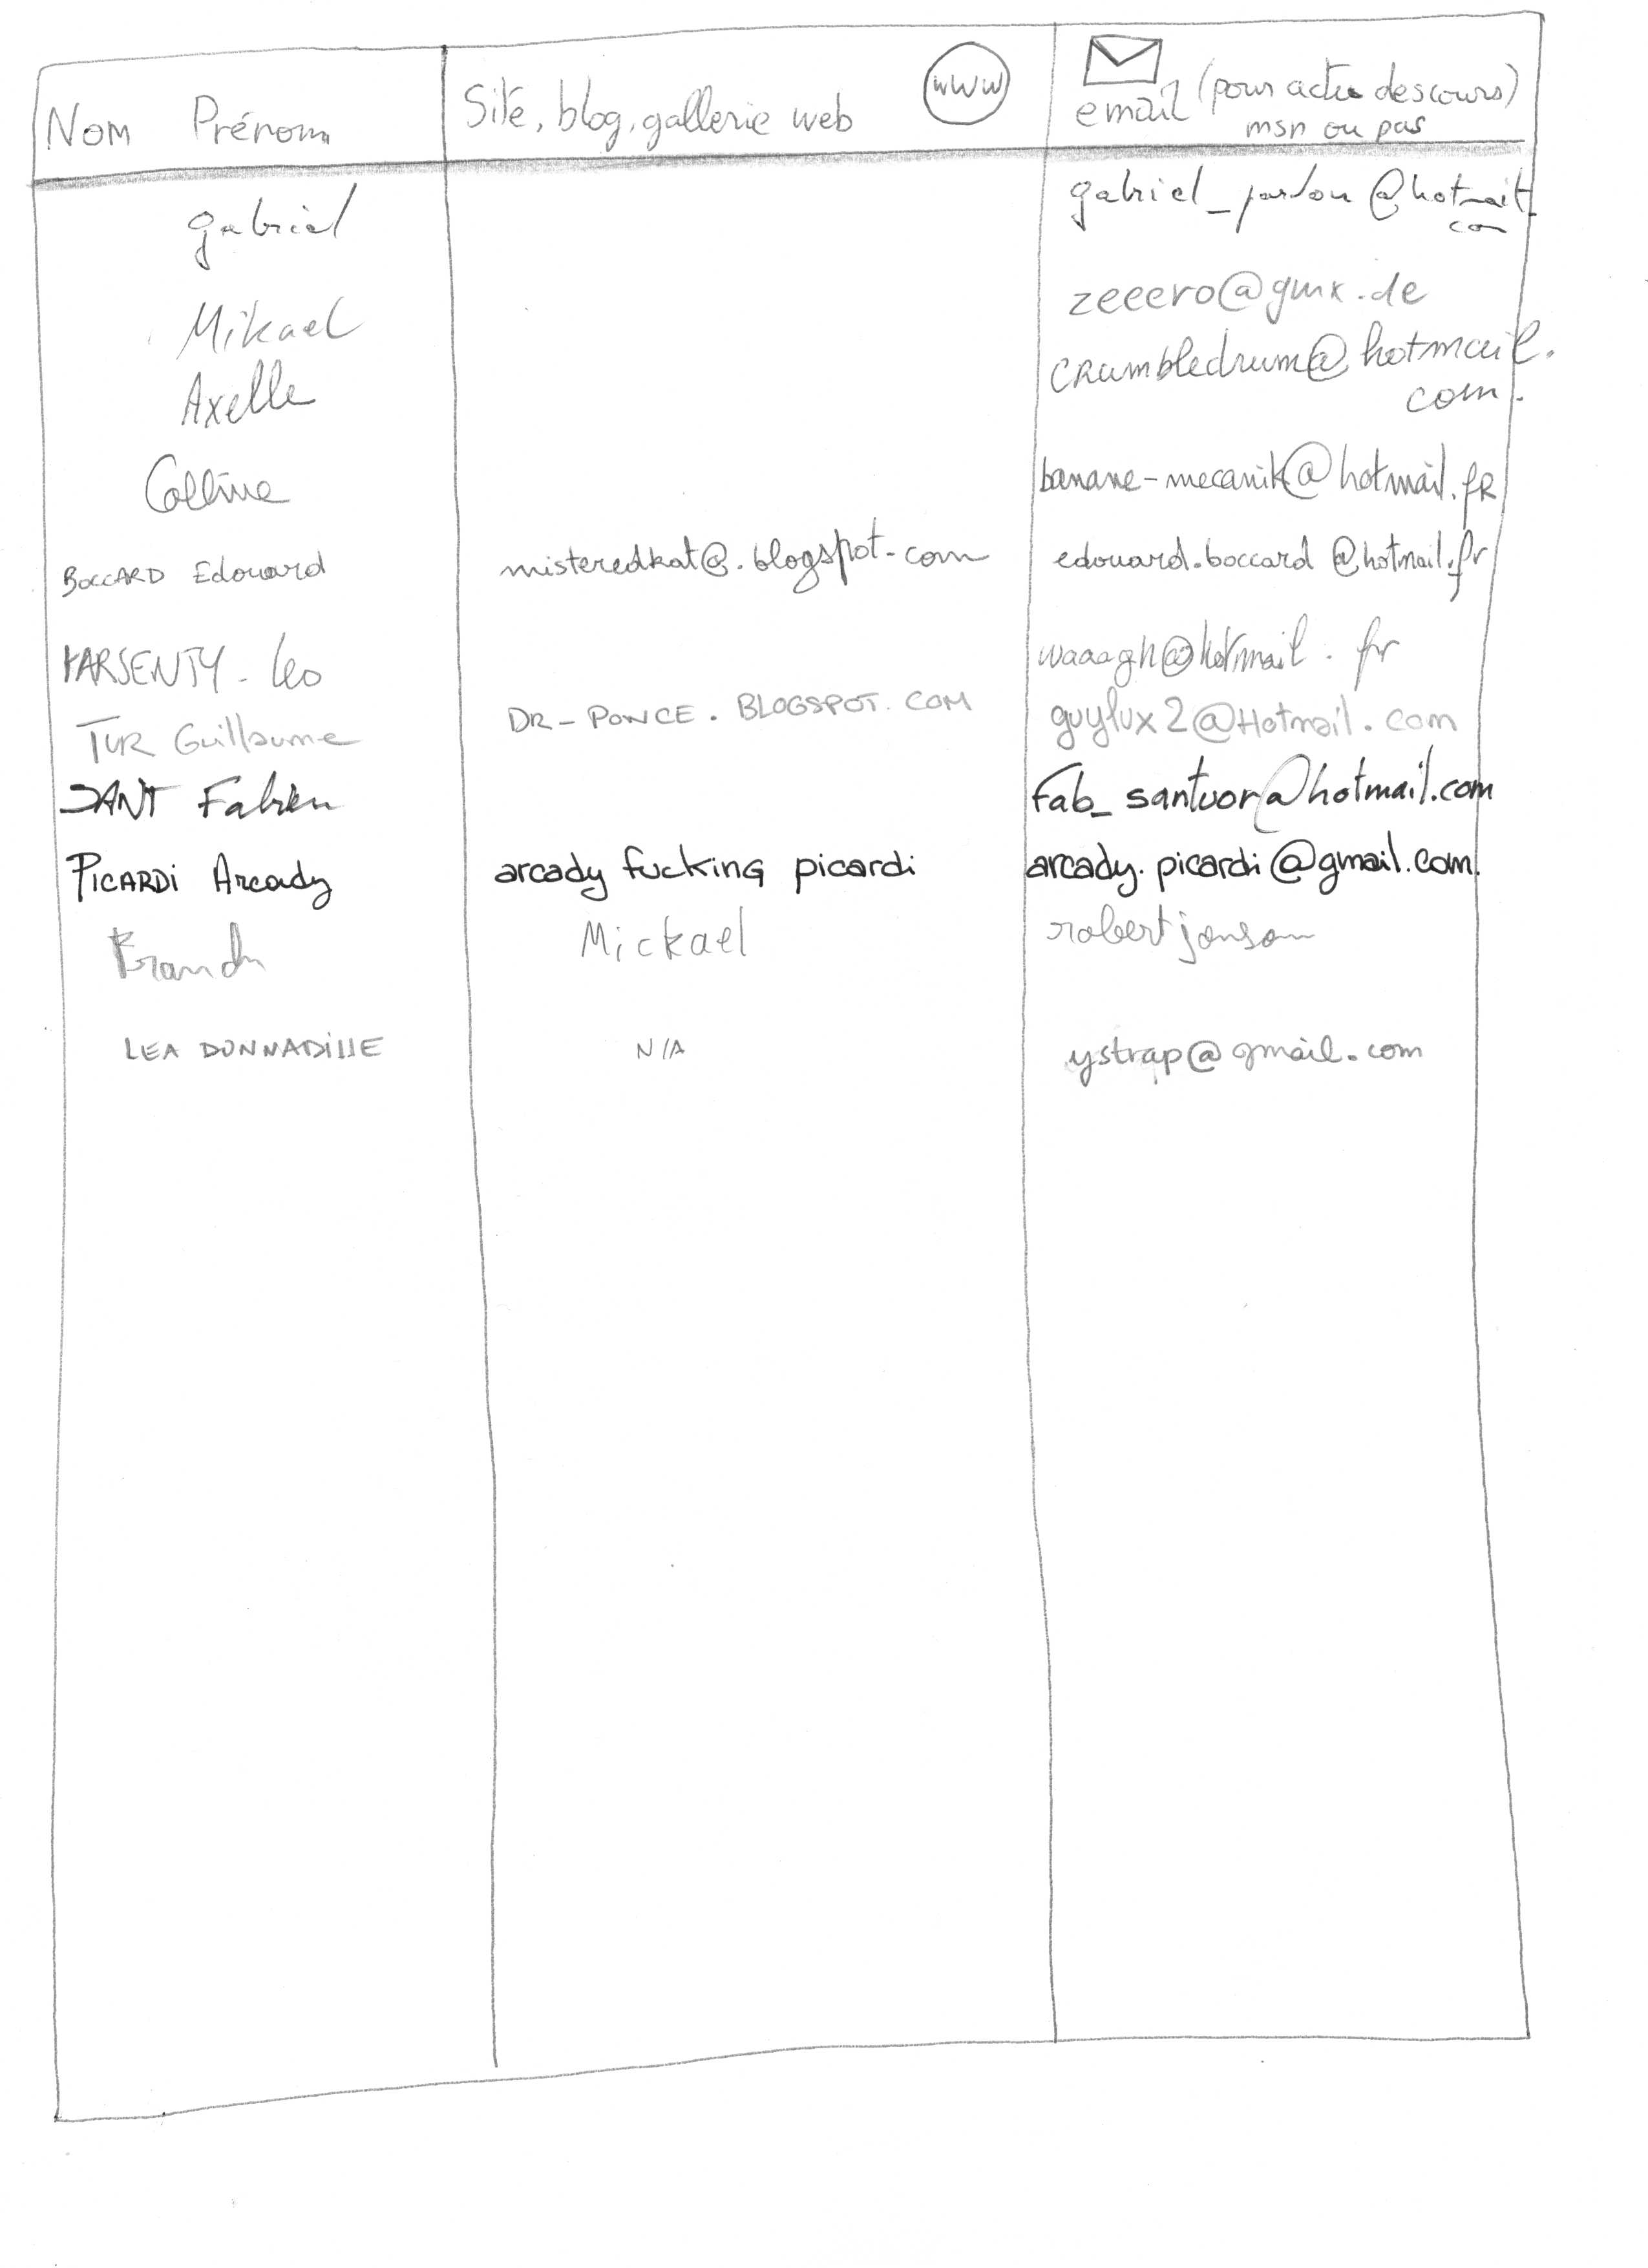 Nom Prénom
Site, blog, gallerie web
www
email (pour actu des cours)
msn ou pas
gabriel
gabriel_ @hotmail.
com
Mikael
zeeero@gmx.de
Axelle
crumbledrum@hotmail.
com.
Colline
banane-mecanik@hotmail.fr
BOCCARD Edouard misteredkat@.blogspot.com edouard.boccard @hotmail.fr
KARSENTY - leo waaagh@hotmail.fr
TUR Guillaume DR-PONCE.BLOGSPOT.COM guylux2@Hotmail.com
SANT Fabien Fab_santuor@hotmail.com
PICARDi Arcady arcady fucking picardi arcady.picardi@gmail.com.
Mickael robert jonson
LEA DONNADILLE N/A ystrap@gmail.com